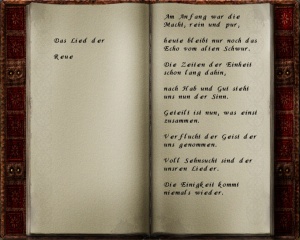 Das Lied der
Reue
Am Anfang war die
Macht, rein und pur,
heute bleibt nur noch das
Echo vom alten Schwur.
Die Zeiten der Einheit
schon lang dahin,
nach Hab und Gut steht
uns nun der Sinn.
Geteilt ist nun, was einst
zusammen.
Verflucht der Geist der
uns genommen.
Voll Sehnsucht sind der
unsren Lieder.
Die Einigkeit kommt
niemals wieder.